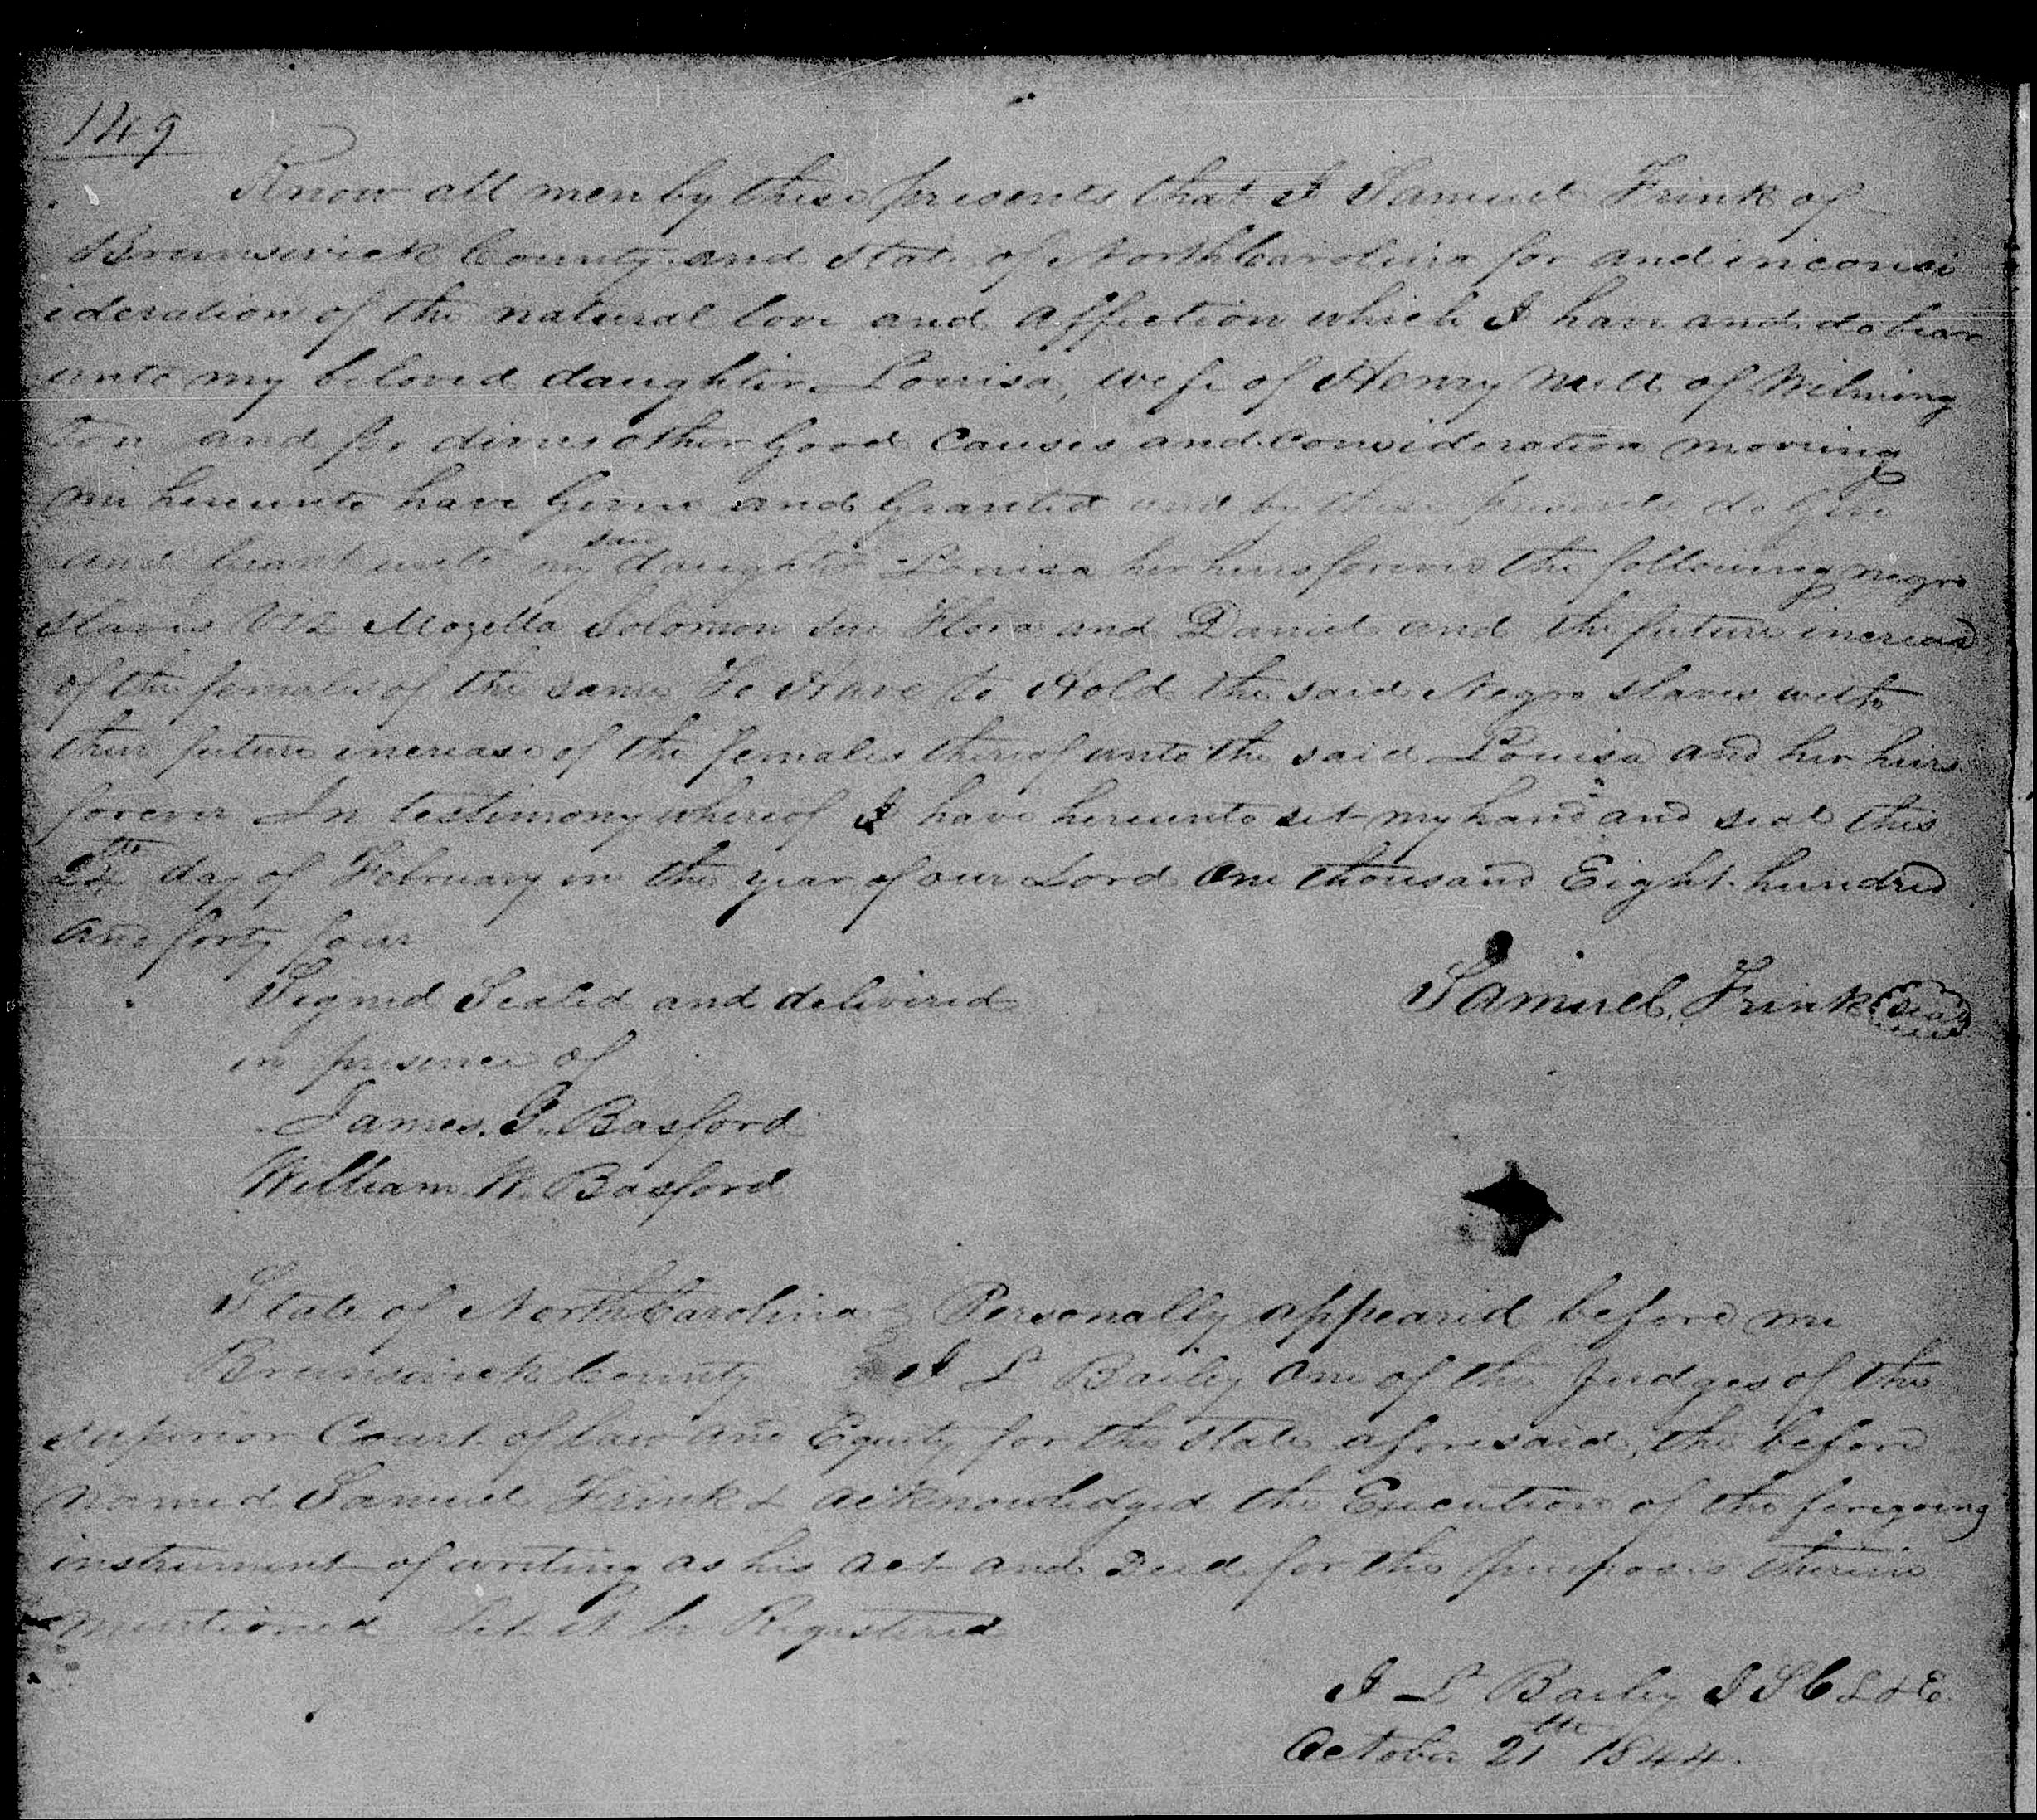 149
Know all men by these presents that I Samuel Frink of
Brunswick County and State of North Carolina for and in consi
ideration of the natural love and affection which I have and do bear
unto my beloved daughter Louisa, wife of Henry Nutt of Wilming
ton and for divers other Good Causes and Consideration moving
me hereunto have Given and Granted and by these presents do Give
and Grant unto my said daughter Louisa her heirs forever the following negro
slaves Viz Mozella Solomon Sue Flora and Daniel and the future increase
of the females of the same To Have to Hold the said Negro slaves with
their future increase of the females thereof unto the said Louisa and her heirs
forever In testimony whereof I have hereunto set my hand and seal this
24th day of February in the year of our Lord One thousand Eight hundred
and forty four
Signed Sealed and delivered
Samuel Frink Seal
in presence of
James. G. Basford
William W. Basford
State of North Carolina Personally appeared before me
Brunswick County J L Bailey One of the Judges of the
superior Court of Law and Equity for the State aforesaid, the before
named Samuel Frink & acknowledged the Execution of the foregoing
instrument of writing as his act and Deed for the purposes therein
mentioned Let it be Registered
J L Bailey J S C L & E.
October 21th 1844.